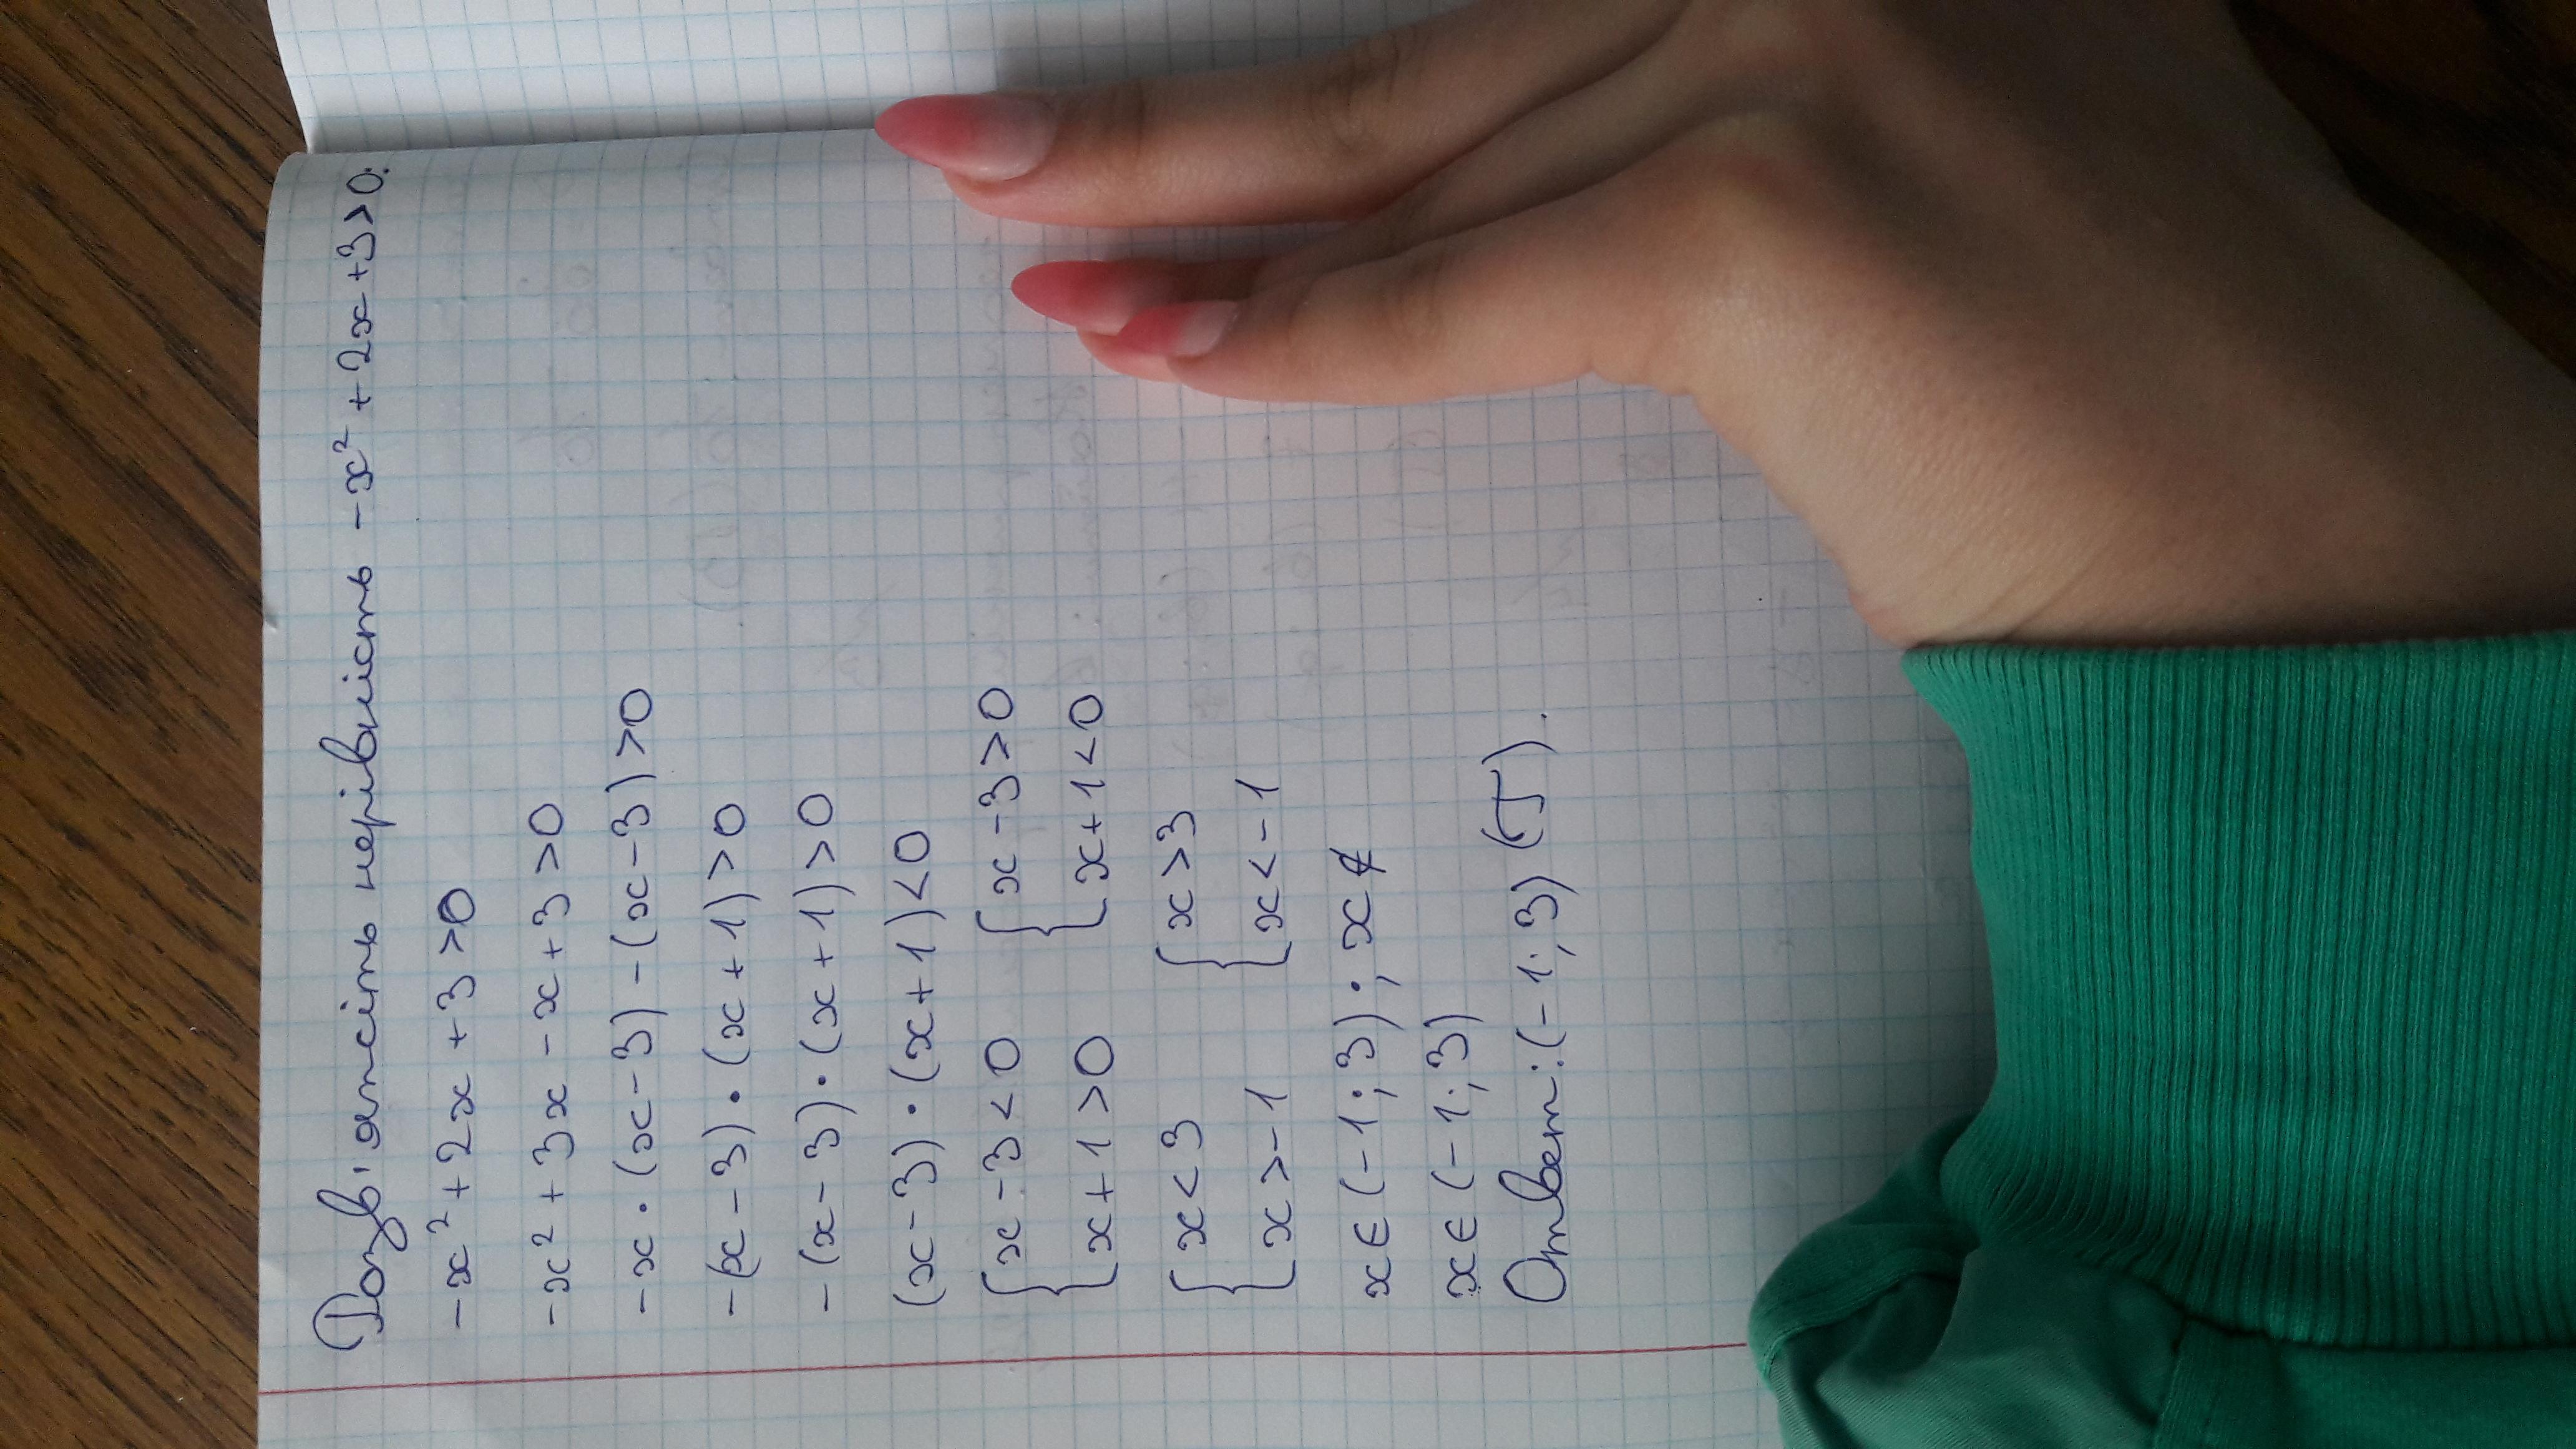 Розв'язність нерівність -x² + 2x + 3 > 0.
-x² + 2x + 3 > 0
-x² + 3x - x + 3 > 0
-x · (x - 3) - (x - 3) > 0
-(x - 3) · (x + 1) > 0
-(x - 3) · (x + 1) > 0
(x - 3) · (x + 1) < 0
{ x - 3 < 0 { x - 3 > 0
x + 1 > 0 x + 1 < 0
{ x < 3 { x > 3
x > -1 x < -1
x ∈ (-1; 3) ; x ∉
x ∈ (-1; 3)
Ответ: (-1; 3) (Б).